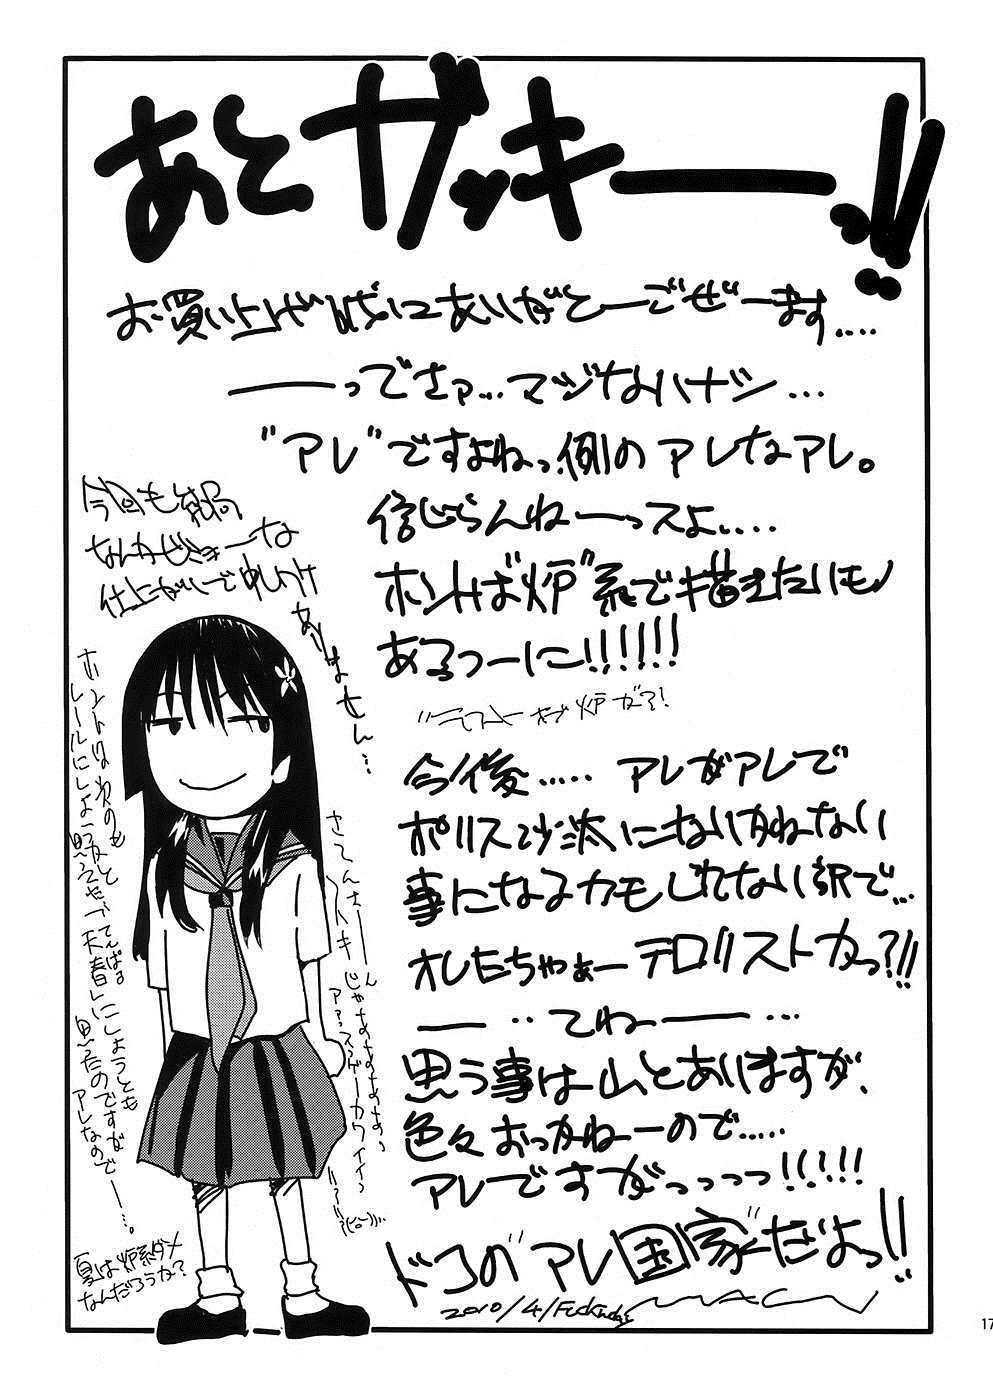 あとガッキーーッ!!
お買い上げ誠にありがとーごぜーます....
――ってさァ...マジなハナシ...
"アレ"ですよねっ、例のアレなアレ。
信じらんねーーッスよ....
ホントは"炉"系で描きたいもん
あるっつーに!!!!!!
今後.....アレがアレで
ポリス沙汰になりかねない
事になるカモしれない訳で...
オレたちゃぁーテロリストかっ?!!
――‥てねー――...
思う事は山とありますが、
色々おっかねーので.....
アレですがっっっっ!!!!!
ドコのアレ国家だよっ!!
2010/4/Fuckuda
今回も結局
なんかびみょーな
仕上がりで申しわけ
ありません...
さてんさーーん
じゃなぁぁぁぁぁ、
アァ、スッゲーカワイイッ
ホントは次のも
レールにしようかと
思ってたのですが
アレなので―...。
夏は炉系ダメ
なんだろうか?
17